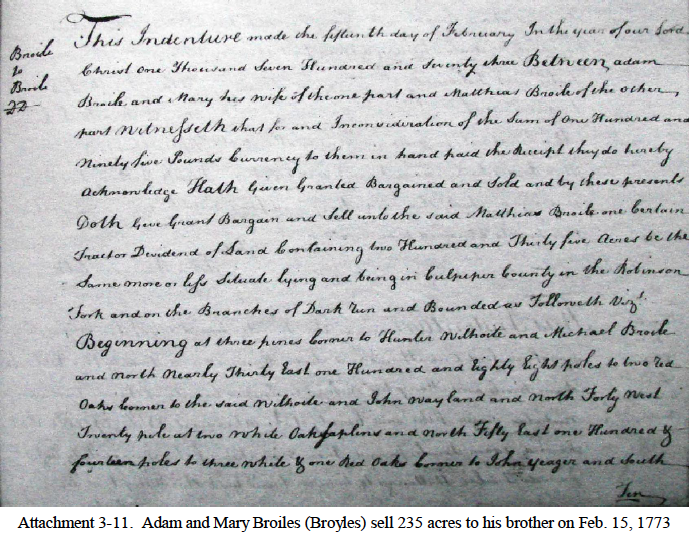 Broile
to
Broile
This Indenture made the fifteenth day of February In the year of our Lord
Christ One Thousand Seven Hundred and Seventy three Between adam
Broile and Mary his wife of the one part and Matthias Broile of the other
part Witnesseth that for and Inconsideration of the Sum of One Hundred and
Ninety five Pounds Currency to them in hand paid the Receipt they do hereby
acknowledge Hath Given Granted Bargained and Sold and by these presents
Doth Give Grant Bargain and Sell unto the said Matthias Broile one Certain
Tract or Dividend of Land Containing two Hundred and Thirty five Acres be the
Same more or less Situate lying and being in Culpeper County in the Robinson
Fork and on the Branches of Dark Run and Bounded as Followeth Vizt.
Beginning at three pines Corner to Hunter Wilhoite and Michael Broile
and North Nearly Thirty East one Hundred and Eighty Eight poles to two red
Oaks Corner to the said Wilhoite and John Wayland and North Forty West
Twenty pole at two White Oak saplins and North Fifty East one Hundred &
fourteen poles to three White & one Red Oaks Corner to John Yeager and South
Ten
Attachment 3-11. Adam and Mary Broiles (Broyles) sell 235 acres to his brother on Feb. 15, 1773